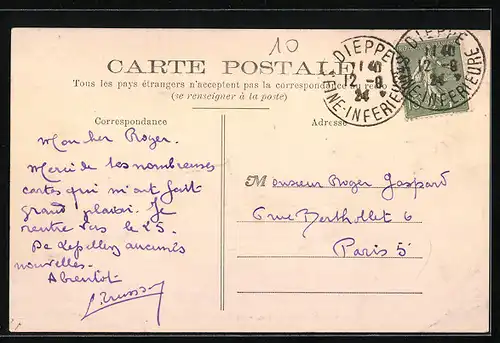 10
CARTE POSTALE
Tous les pays étrangers n'acceptent pas la correspondance au recto
(se renseigner à la poste)
DIEPPE
11 40
12 -8
24
SEINE-INFERIEURE
DIEPPE
11 40
12 -8
24
SEINE-INFERIEURE
Correspondance
Adresse
Mon cher Roger.
Merci de tes nombreuses
cartes qui m'ont fait
grand plaisir. Je
rentre vers le 25.
De Lepelley aucunes
nouvelles.
A bientôt
Monsieur Roger Gaspard
6 rue Berthollet 6
Paris 5